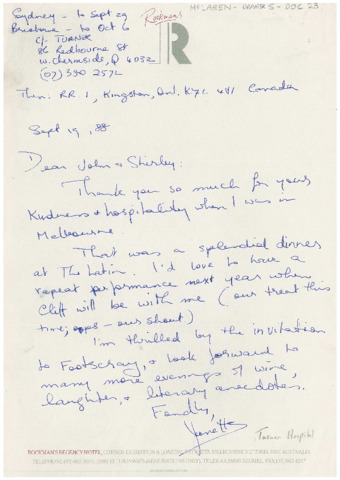 McLAREN-
Rockman's
R
Sydney - to Sept 29
Brisbane - to Oct 6
c/- TURNER
86 Redbourne St
W. Chermside, Q 4032
(07) 350 2572
Then. RR. 1, Kingston, Ont. K7L 4V1 Canada
Sept 19, 88
Dear John & Shirley:
Thank you so much for your
kindness & hospitality when I was in
Melbourne.
That was a splendid dinner
at The Latin. I'd love to have a
repeat performance next year when
Cliff will be with me (our treat this
time; oops - our shout)
I'm thrilled by the invitation
to Footscray, & look forward to
many more evenings of wine,
laughter, & literary anecdotes.
Fondly,
Janette
Turner Hospital
ROCKMAN'S REGENCY HOTEL, CORNER EXHIBITION & LONSDALE STREETS MELBOURNE VICTORIA 3000 AUSTRALIA